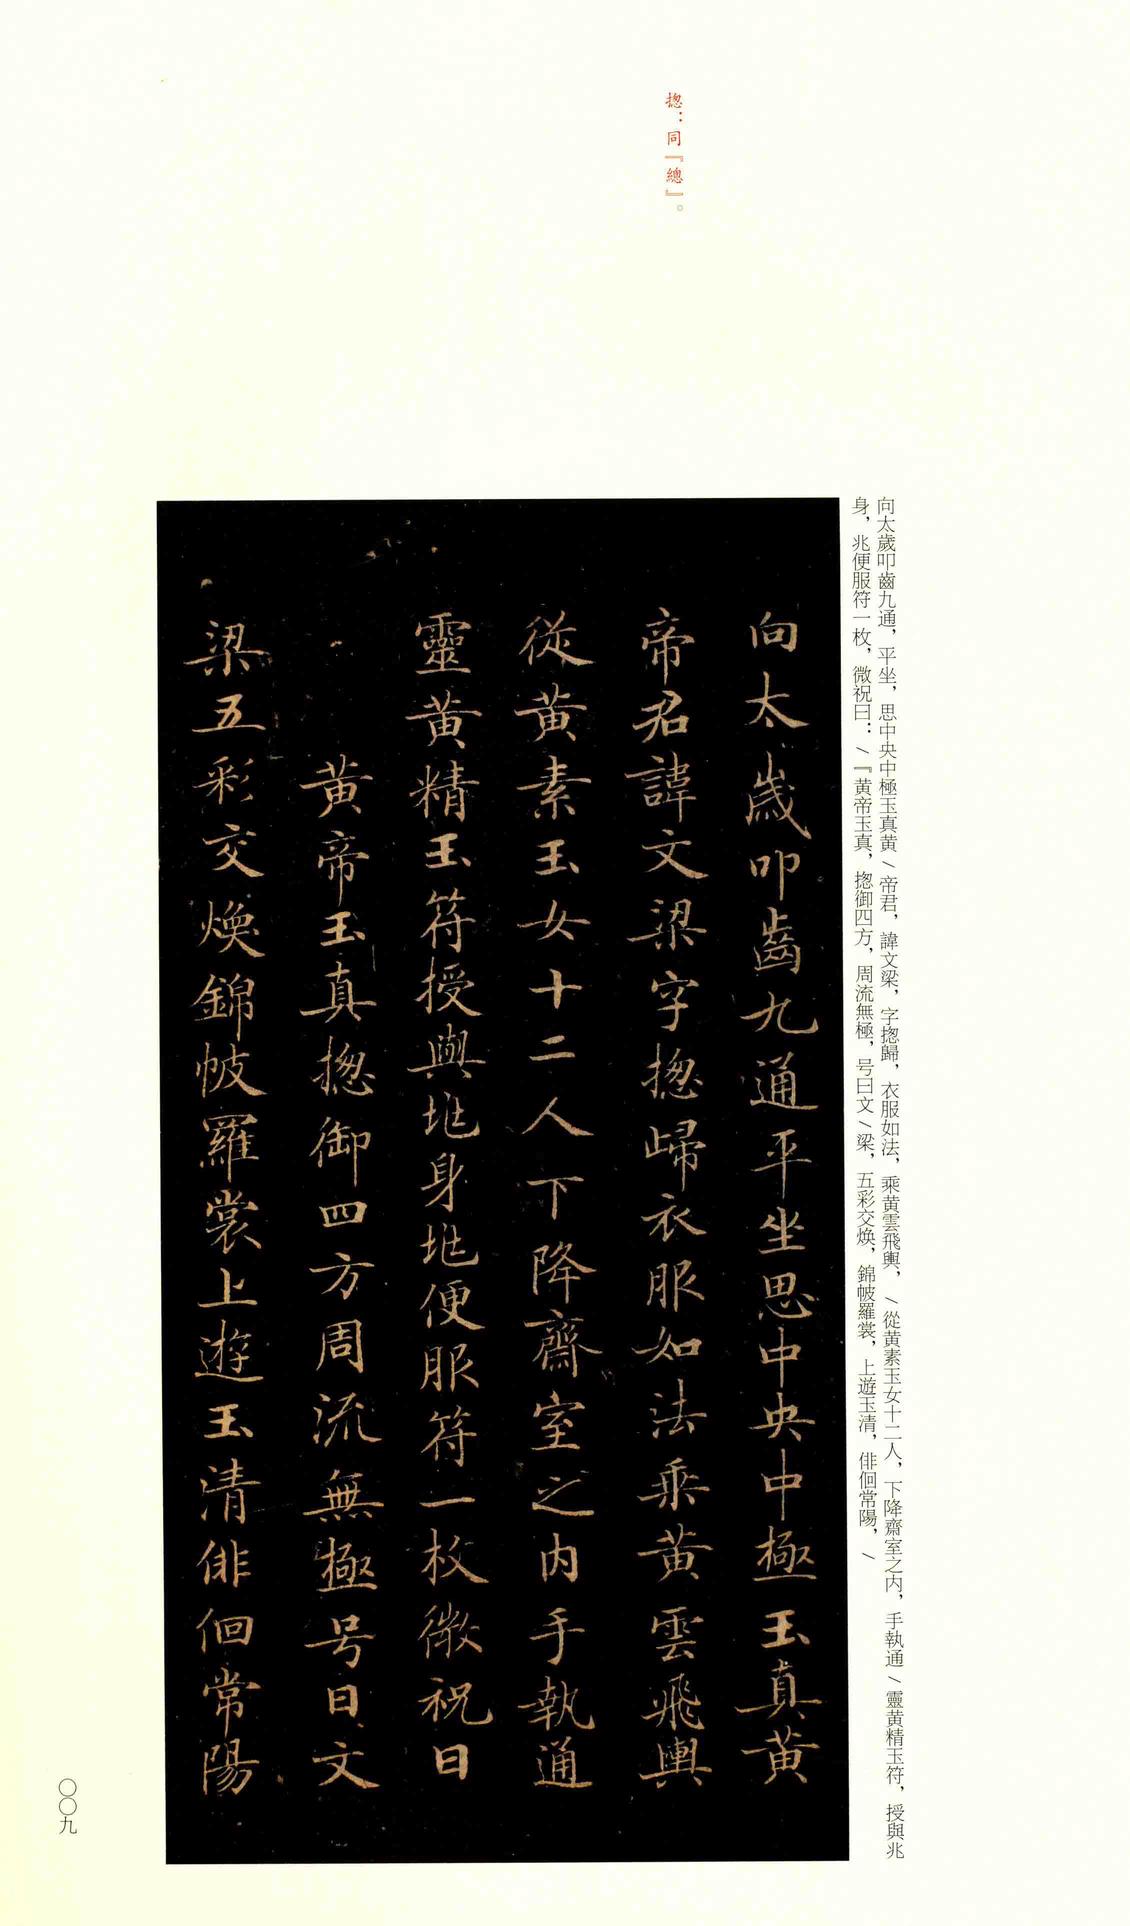 摠：同『總』。
向太歲叩齒九通，平坐，思中央中極玉真黄／帝君，諱文梁，字摠歸，衣服如法，乘黄雲飛輿，／從黄素玉女十二人，下降齋室之内，手執通／靈黄精玉符，授與兆
身，兆便服符一枚，微祝曰：／『黄帝玉真，摠御四方，周流無極，号曰文／梁，五彩交焕，錦帔羅裳，上遊玉清，俳佪常陽，／
向太歲叩齒九通平坐思中央中極玉真黄
帝君諱文梁字摠歸衣服如法乘黄雲飛輿
從黄素玉女十二人下降齋室之内手執通
靈黄精玉符授與兆身兆便服符一枚微祝曰
黄帝玉真摠御四方周流無極号曰文
梁五彩交焕錦帔羅裳上遊玉清俳佪常陽
〇〇九